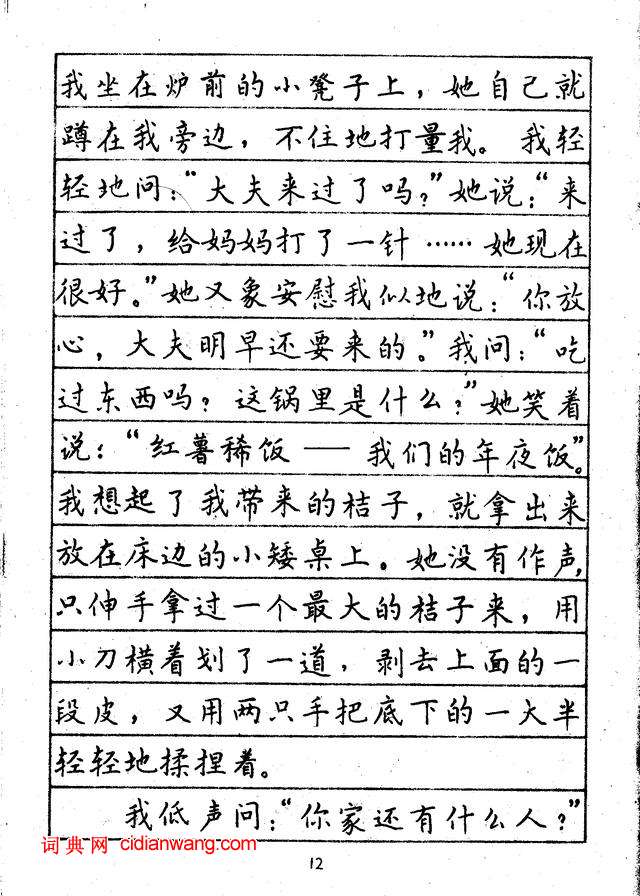 我坐在炉前的小凳子上，她自己就
蹲在我旁边，不住地打量我。我轻
轻地问：“大夫来过了吗？”她说：“来
过了，给妈妈打了一针……她现在
很好。”她又象安慰我似地说：“你放
心，大夫明早还要来的。”我问：“吃
过东西吗？这锅里是什么？”她笑着
说：“红薯稀饭——我们的年夜饭”。
我想起了我带来的桔子，就拿出来
放在床边的小矮桌上。她没有作声，
只伸手拿过一个最大的桔子来，用
小刀横着划了一道，剥去上面的一
段皮，又用两只手把底下的一大半
轻轻地揉捏着。
我低声问：“你家还有什么人？”
词典网 cidianwang.com
12